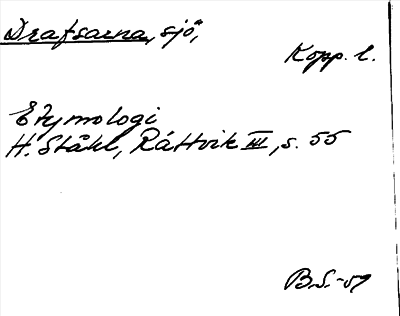 Drafsarna, sjö,
Kopp. l.
Etymologi
H. Ståhl, Rättvik III, s. 55
B.S.-59